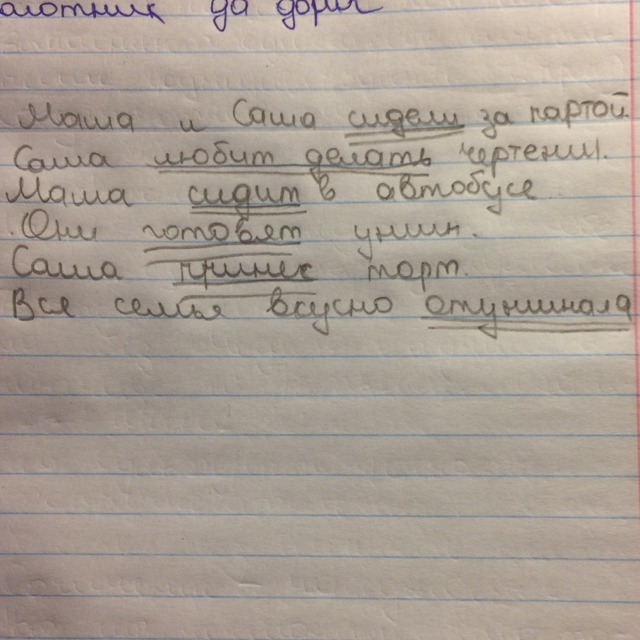 да
Маша и Саша сидели за партой
Саша любит делать чертежи.
Маша сидит в автобусе
Они готовят ужин.
Саша принёс торт.
Все семья вкусно отужинала